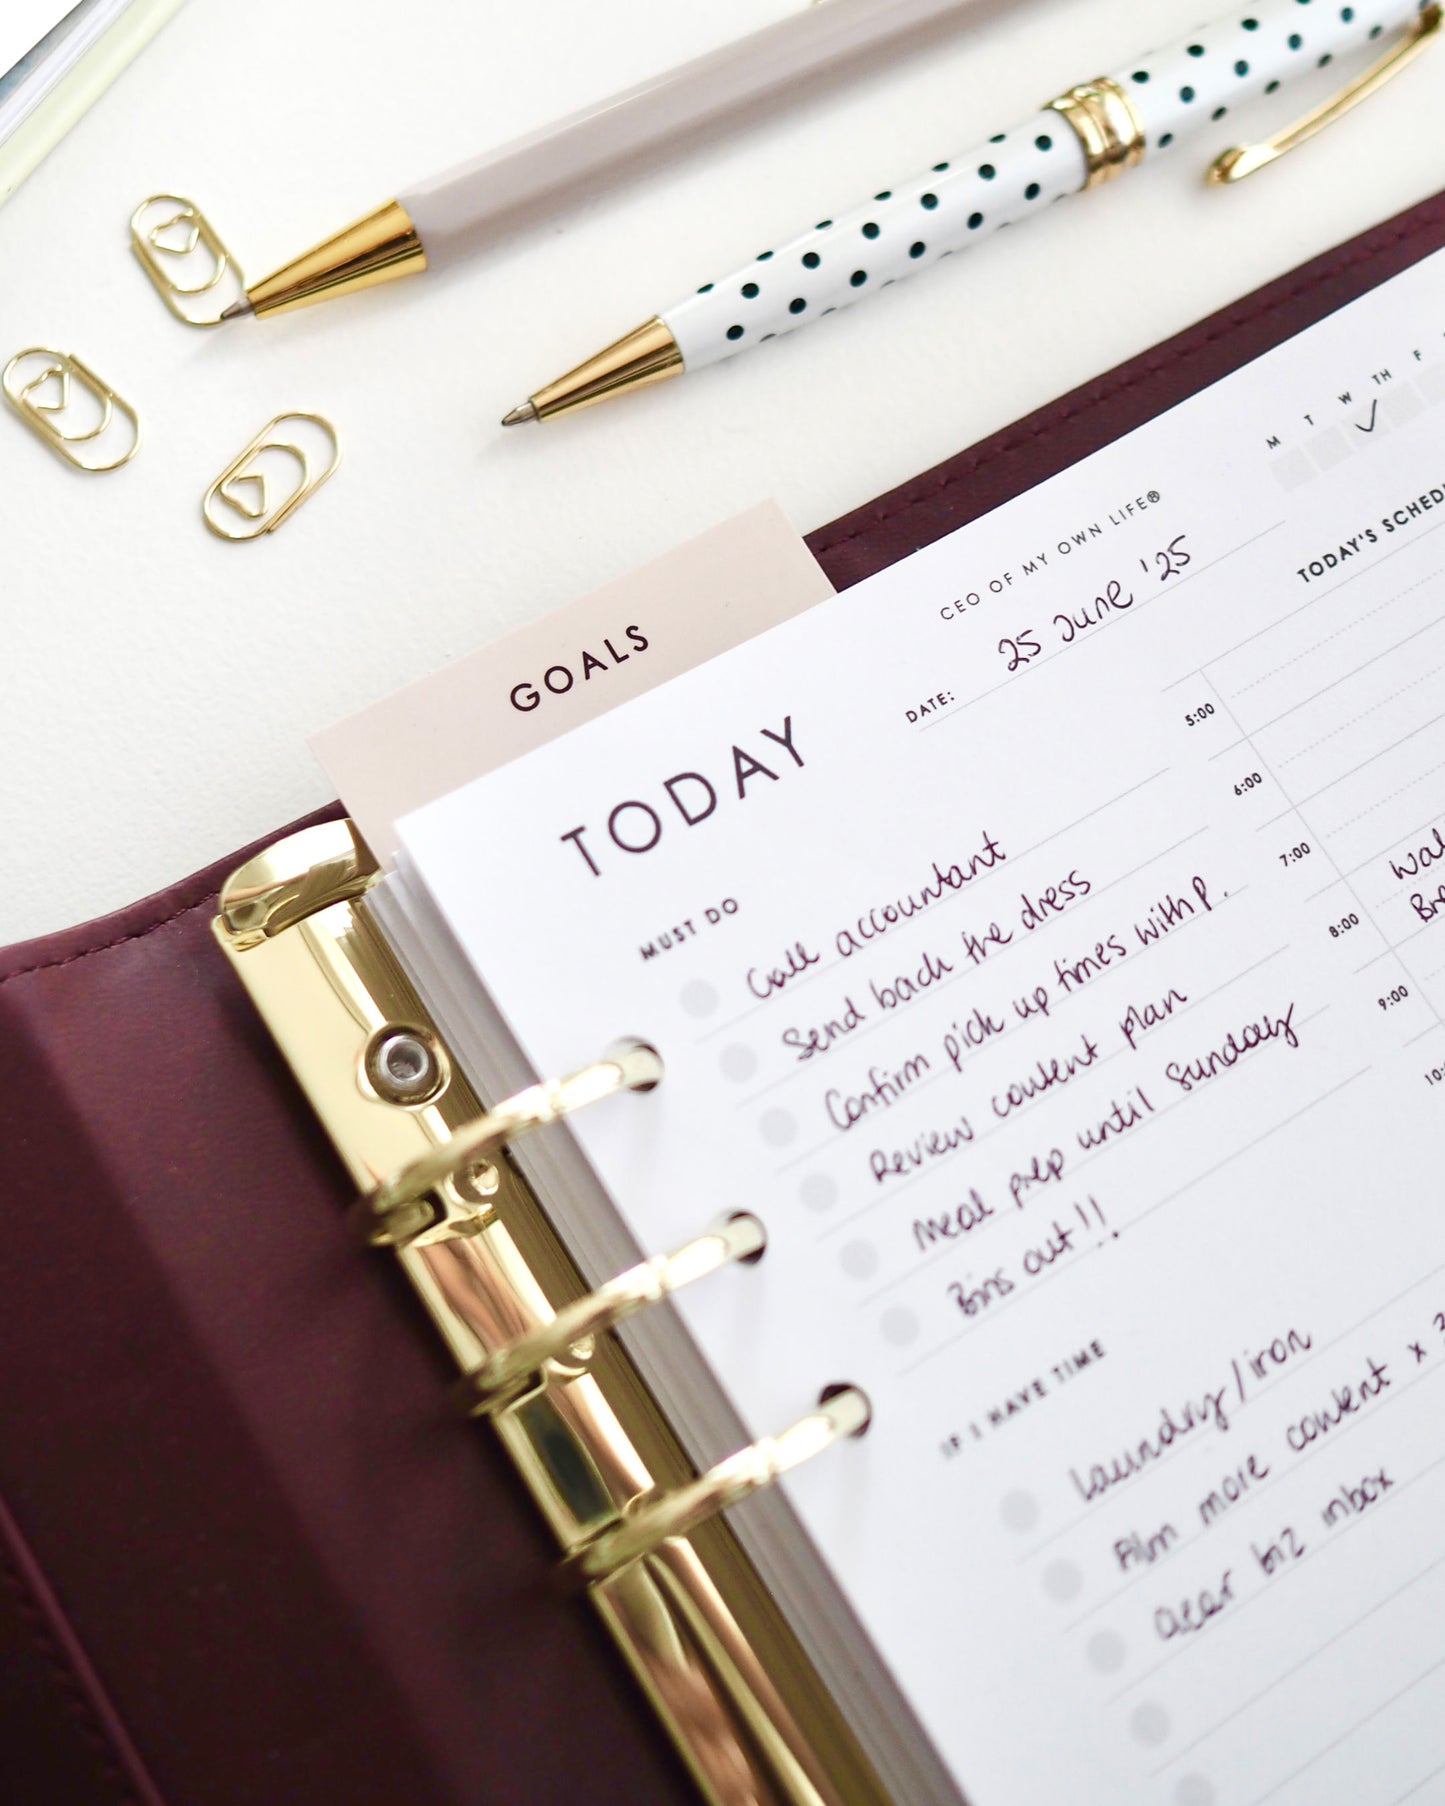 GOALS
CEO OF MY OWN LIFE®
M T W TH F
TODAY
DATE: 25 June '25
TODAY'S
MUST DO
Call accountant
Send back the dress
Confirm pick up times with P.
Review content plan
Meal prep until Sunday
Bins out!!
IF I HAVE TIME
Laundry/iron
Film more content x
Clear biz inbox
5:00
6:00
7:00
8:00
9:00